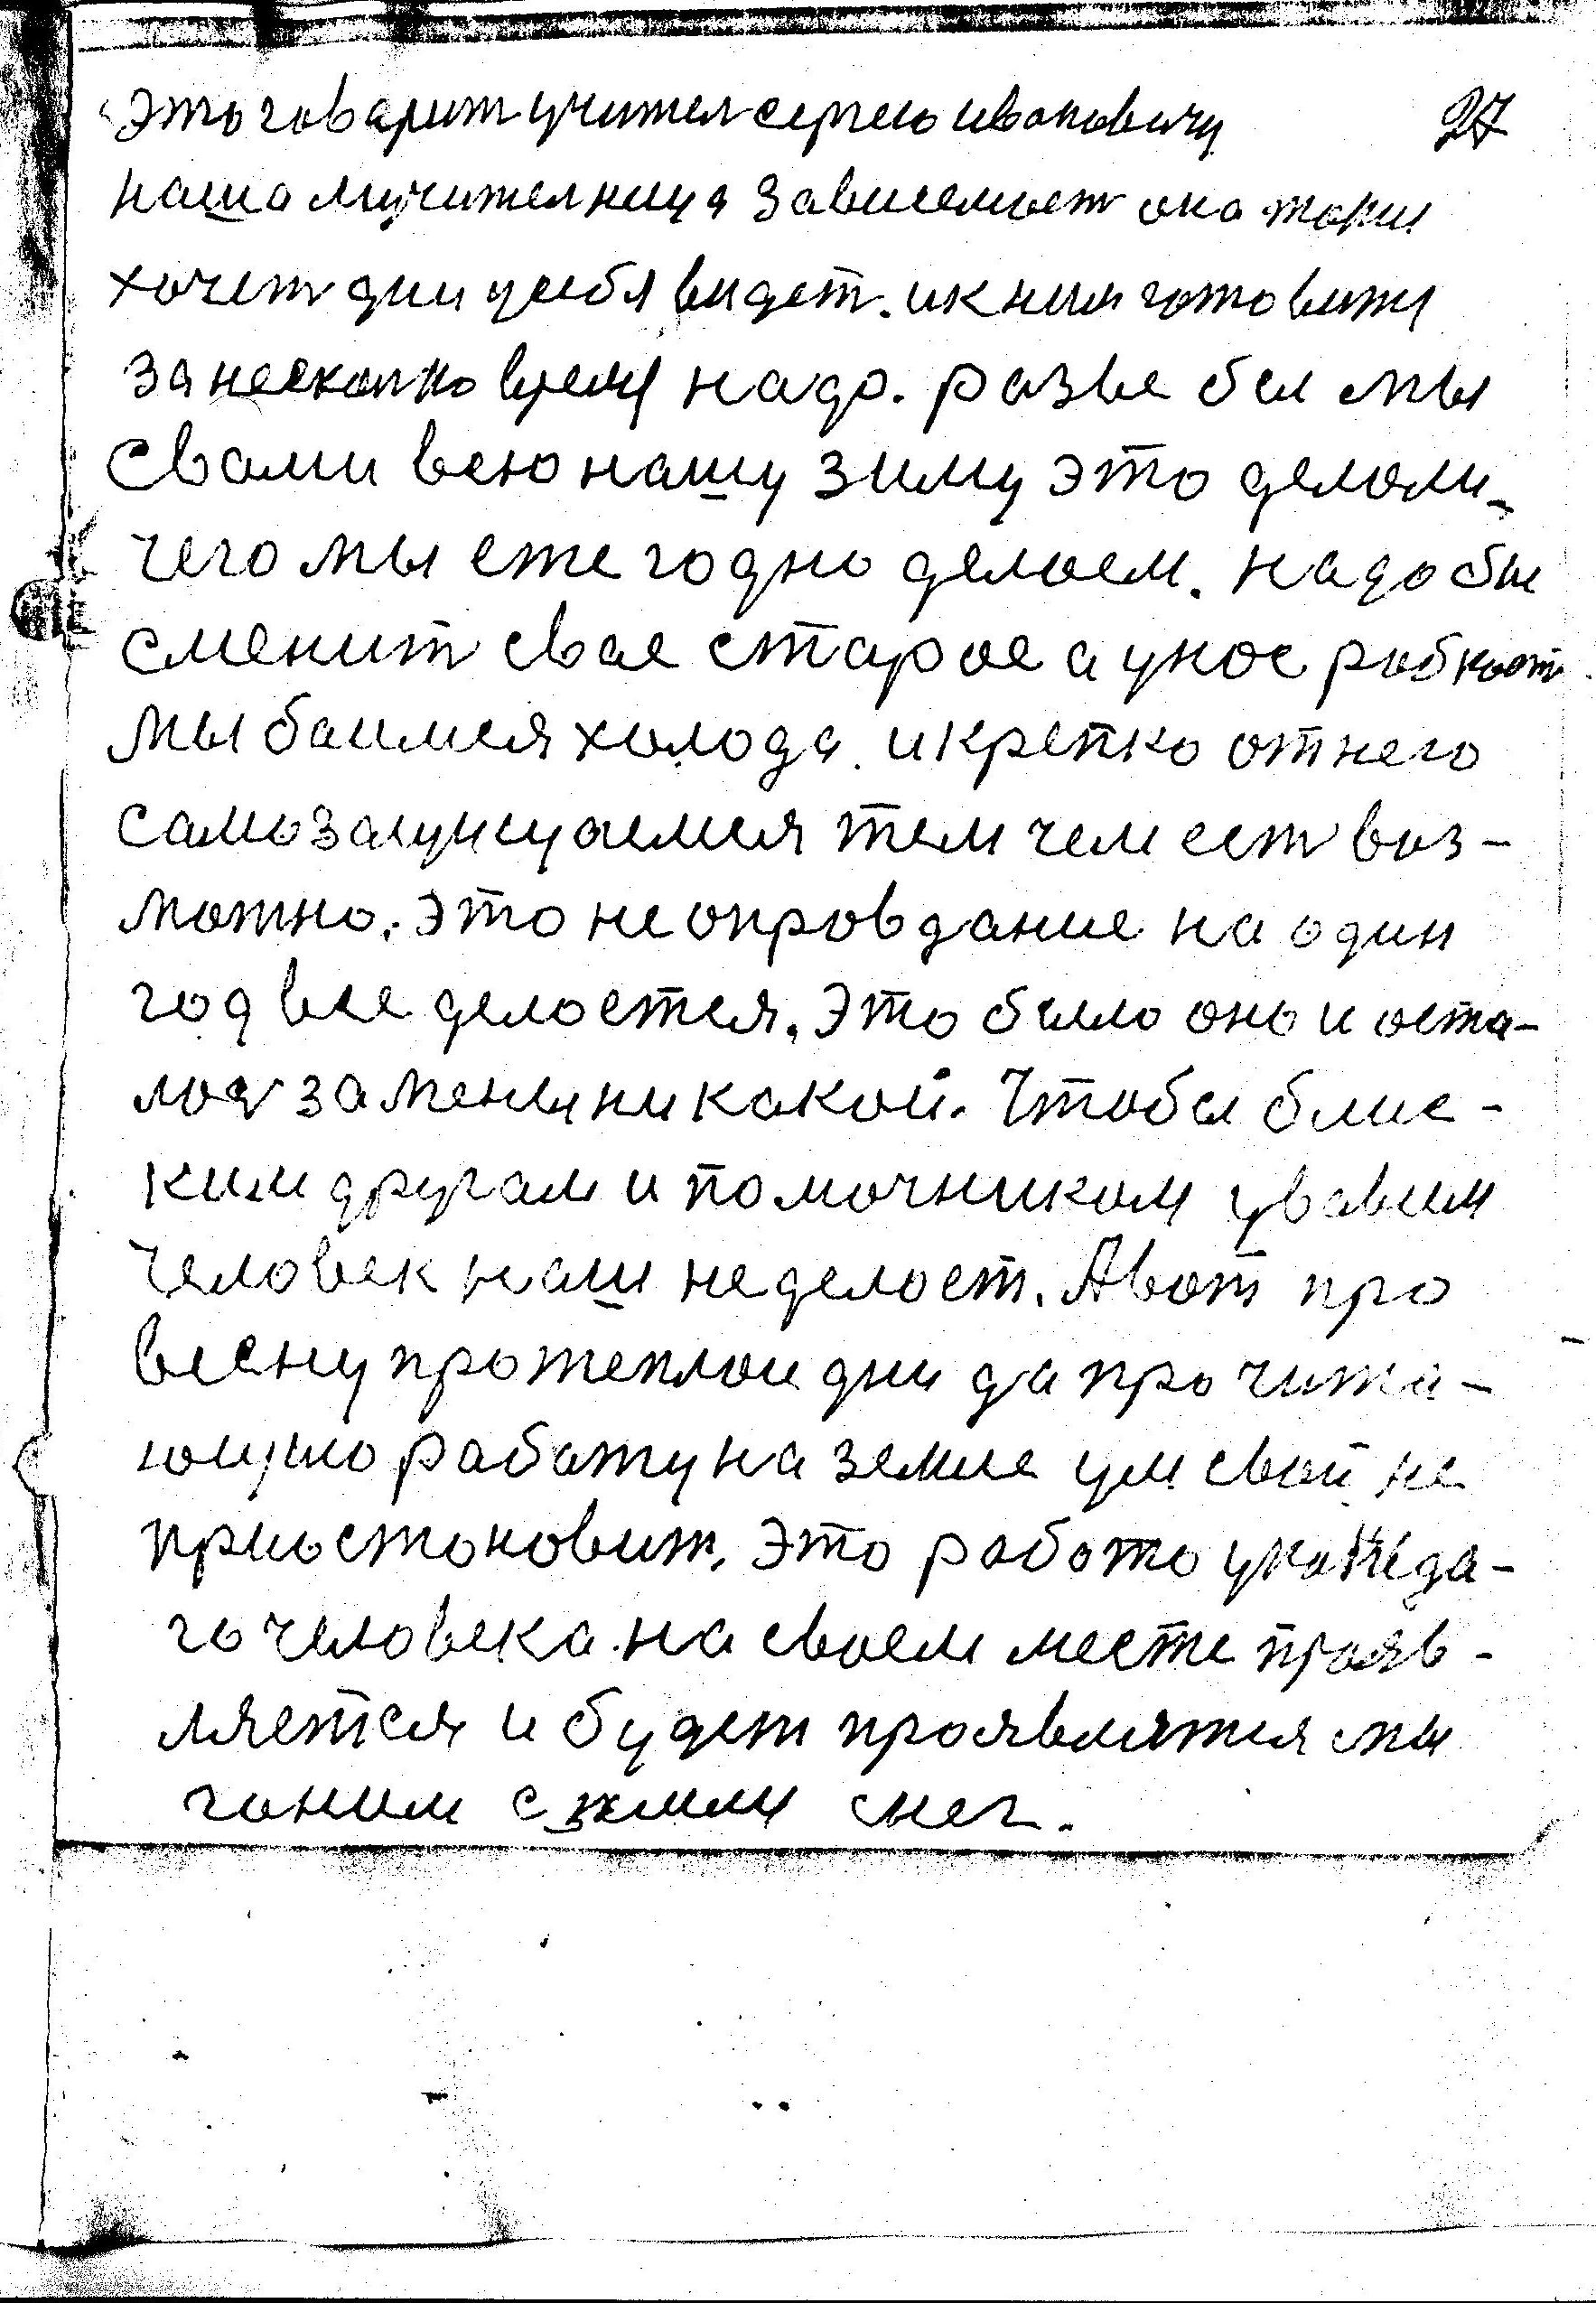 это говарит учител сергею ивоновичу 27
наша мучителница зависемост она таки
хочет дни усебя видет. и к ним готовитя
за несколко время надо. разве бы мы
свами всю нашу зиму это делоли-
чего мы ежегодно делоем. надо бы
сменит свае старое а унос робкост
мы баимся холода. и крепко от него
самозащущаемся тем чем ест воз-
можно. это не опровдание на один
год все делоется. это было оно и оста-
лос замены никакой. Чтобы блис-
ким другам и помочником увавим
человек наш не делоет. А вот про
весну протеплои дни да про чита-
ющую работу на земле ум свой не
приостоновит. это работо укажда-
го человека на своем месте прояв-
ляется и будет проявлятся мы
гоним с земли снег.